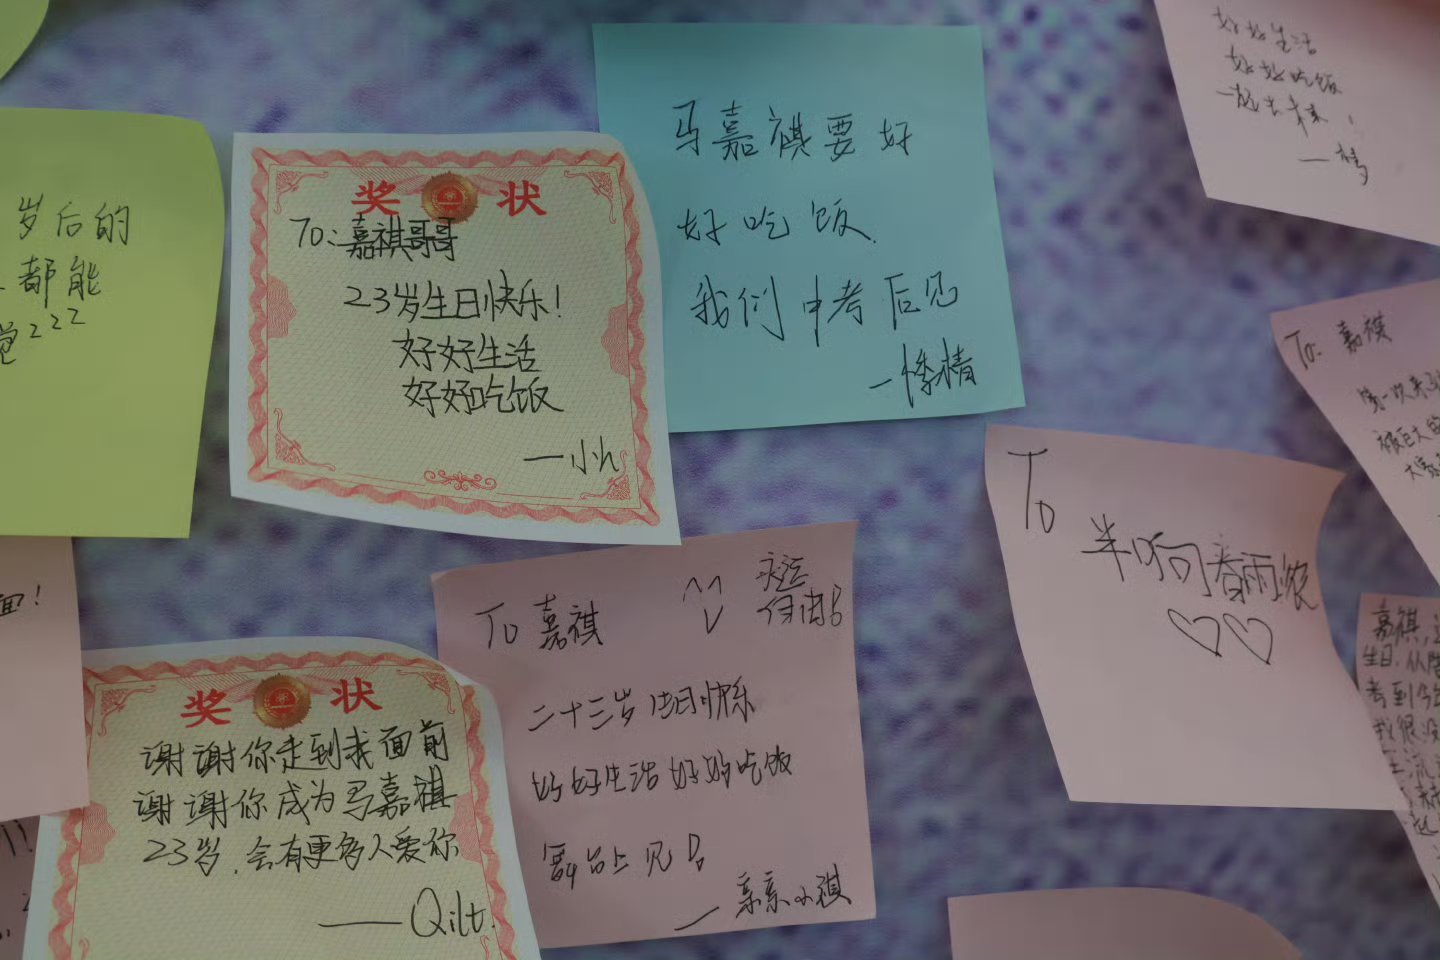 岁后的
都能
觉zzz
奖 状
To:嘉祺哥哥
23岁生日快乐!
好好生活
好好吃饭
—小h
马嘉祺要好
好吃饭
我们中考后见
好好生活
好好吃饭
一起去未来!
—梦
To: 嘉祺
第一次来
To
半响同春雨浓
面!
奖 状
谢谢你走到我面前
谢谢你成为马嘉祺
23岁,会有更多人爱你
——Qilt.
To 嘉祺
永远
自由
二十三岁生日快乐
好好生活 好好吃饭
舞台上见!
—亲亲小祺
嘉祺,
生日,从
考到今
我很没